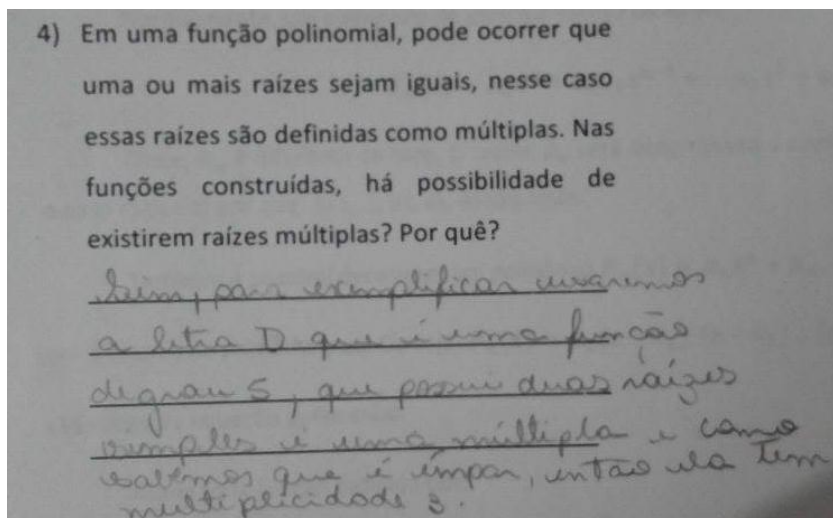 4) Em uma função polinomial, pode ocorrer que
uma ou mais raízes sejam iguais, nesse caso
essas raízes são definidas como múltiplas. Nas
funções construídas, há possibilidade de
existirem raízes múltiplas? Por quê?
Sim, para exemplificar usaremos
a letra D que é uma função
de grau 5, que possui duas raízes
simples e uma múltipla e como
sabemos que é ímpar, então ela tem
multiplicidade 3.